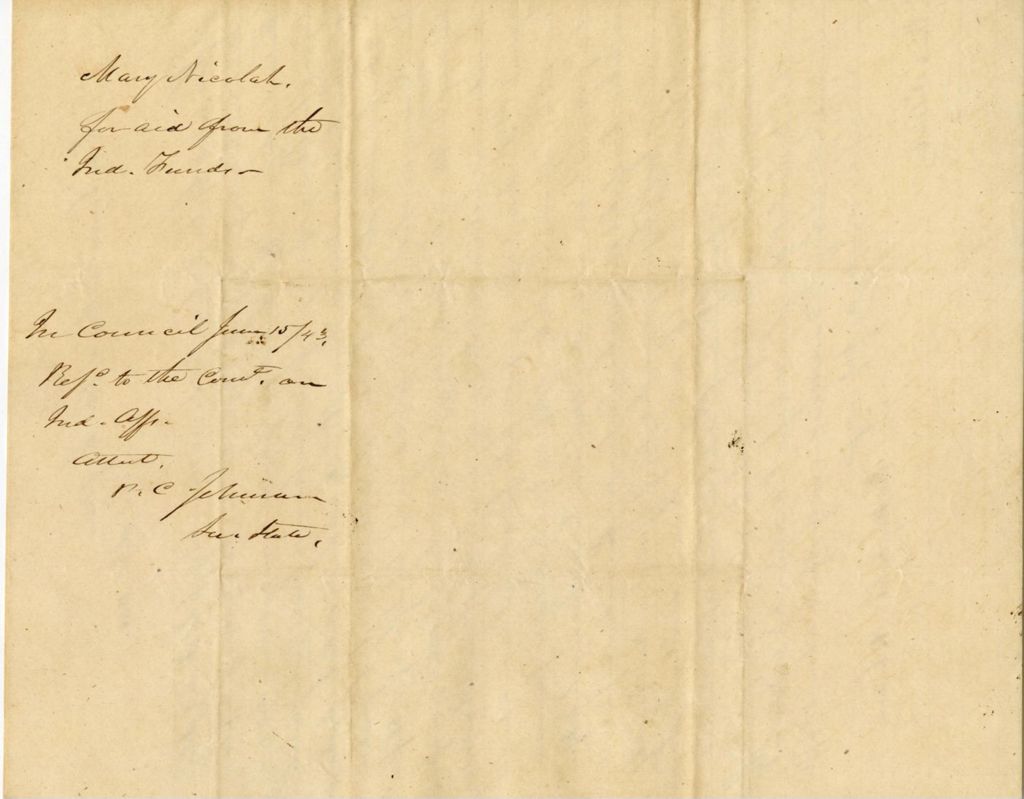 Mary Nicolah.
for aid from the
Ind. Funds -
In Council June 15/43,
Refd. to the Comt. on
Ind. Affs.
Attest.
P. C Johnson
Sec. State,